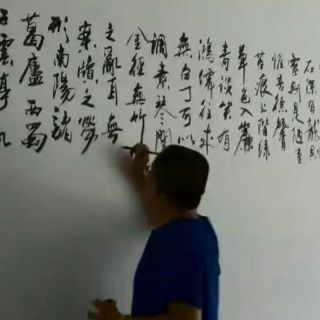 在深有龍則
靈斯是陋室
惟吾德馨
苔痕上階綠
草色入簾
青談笑有
鴻儒往來
無白丁可以
調素琴閱
金經無竹
之亂耳無
案牘之勞
形南陽諸
葛廬西蜀
子雲亭孔